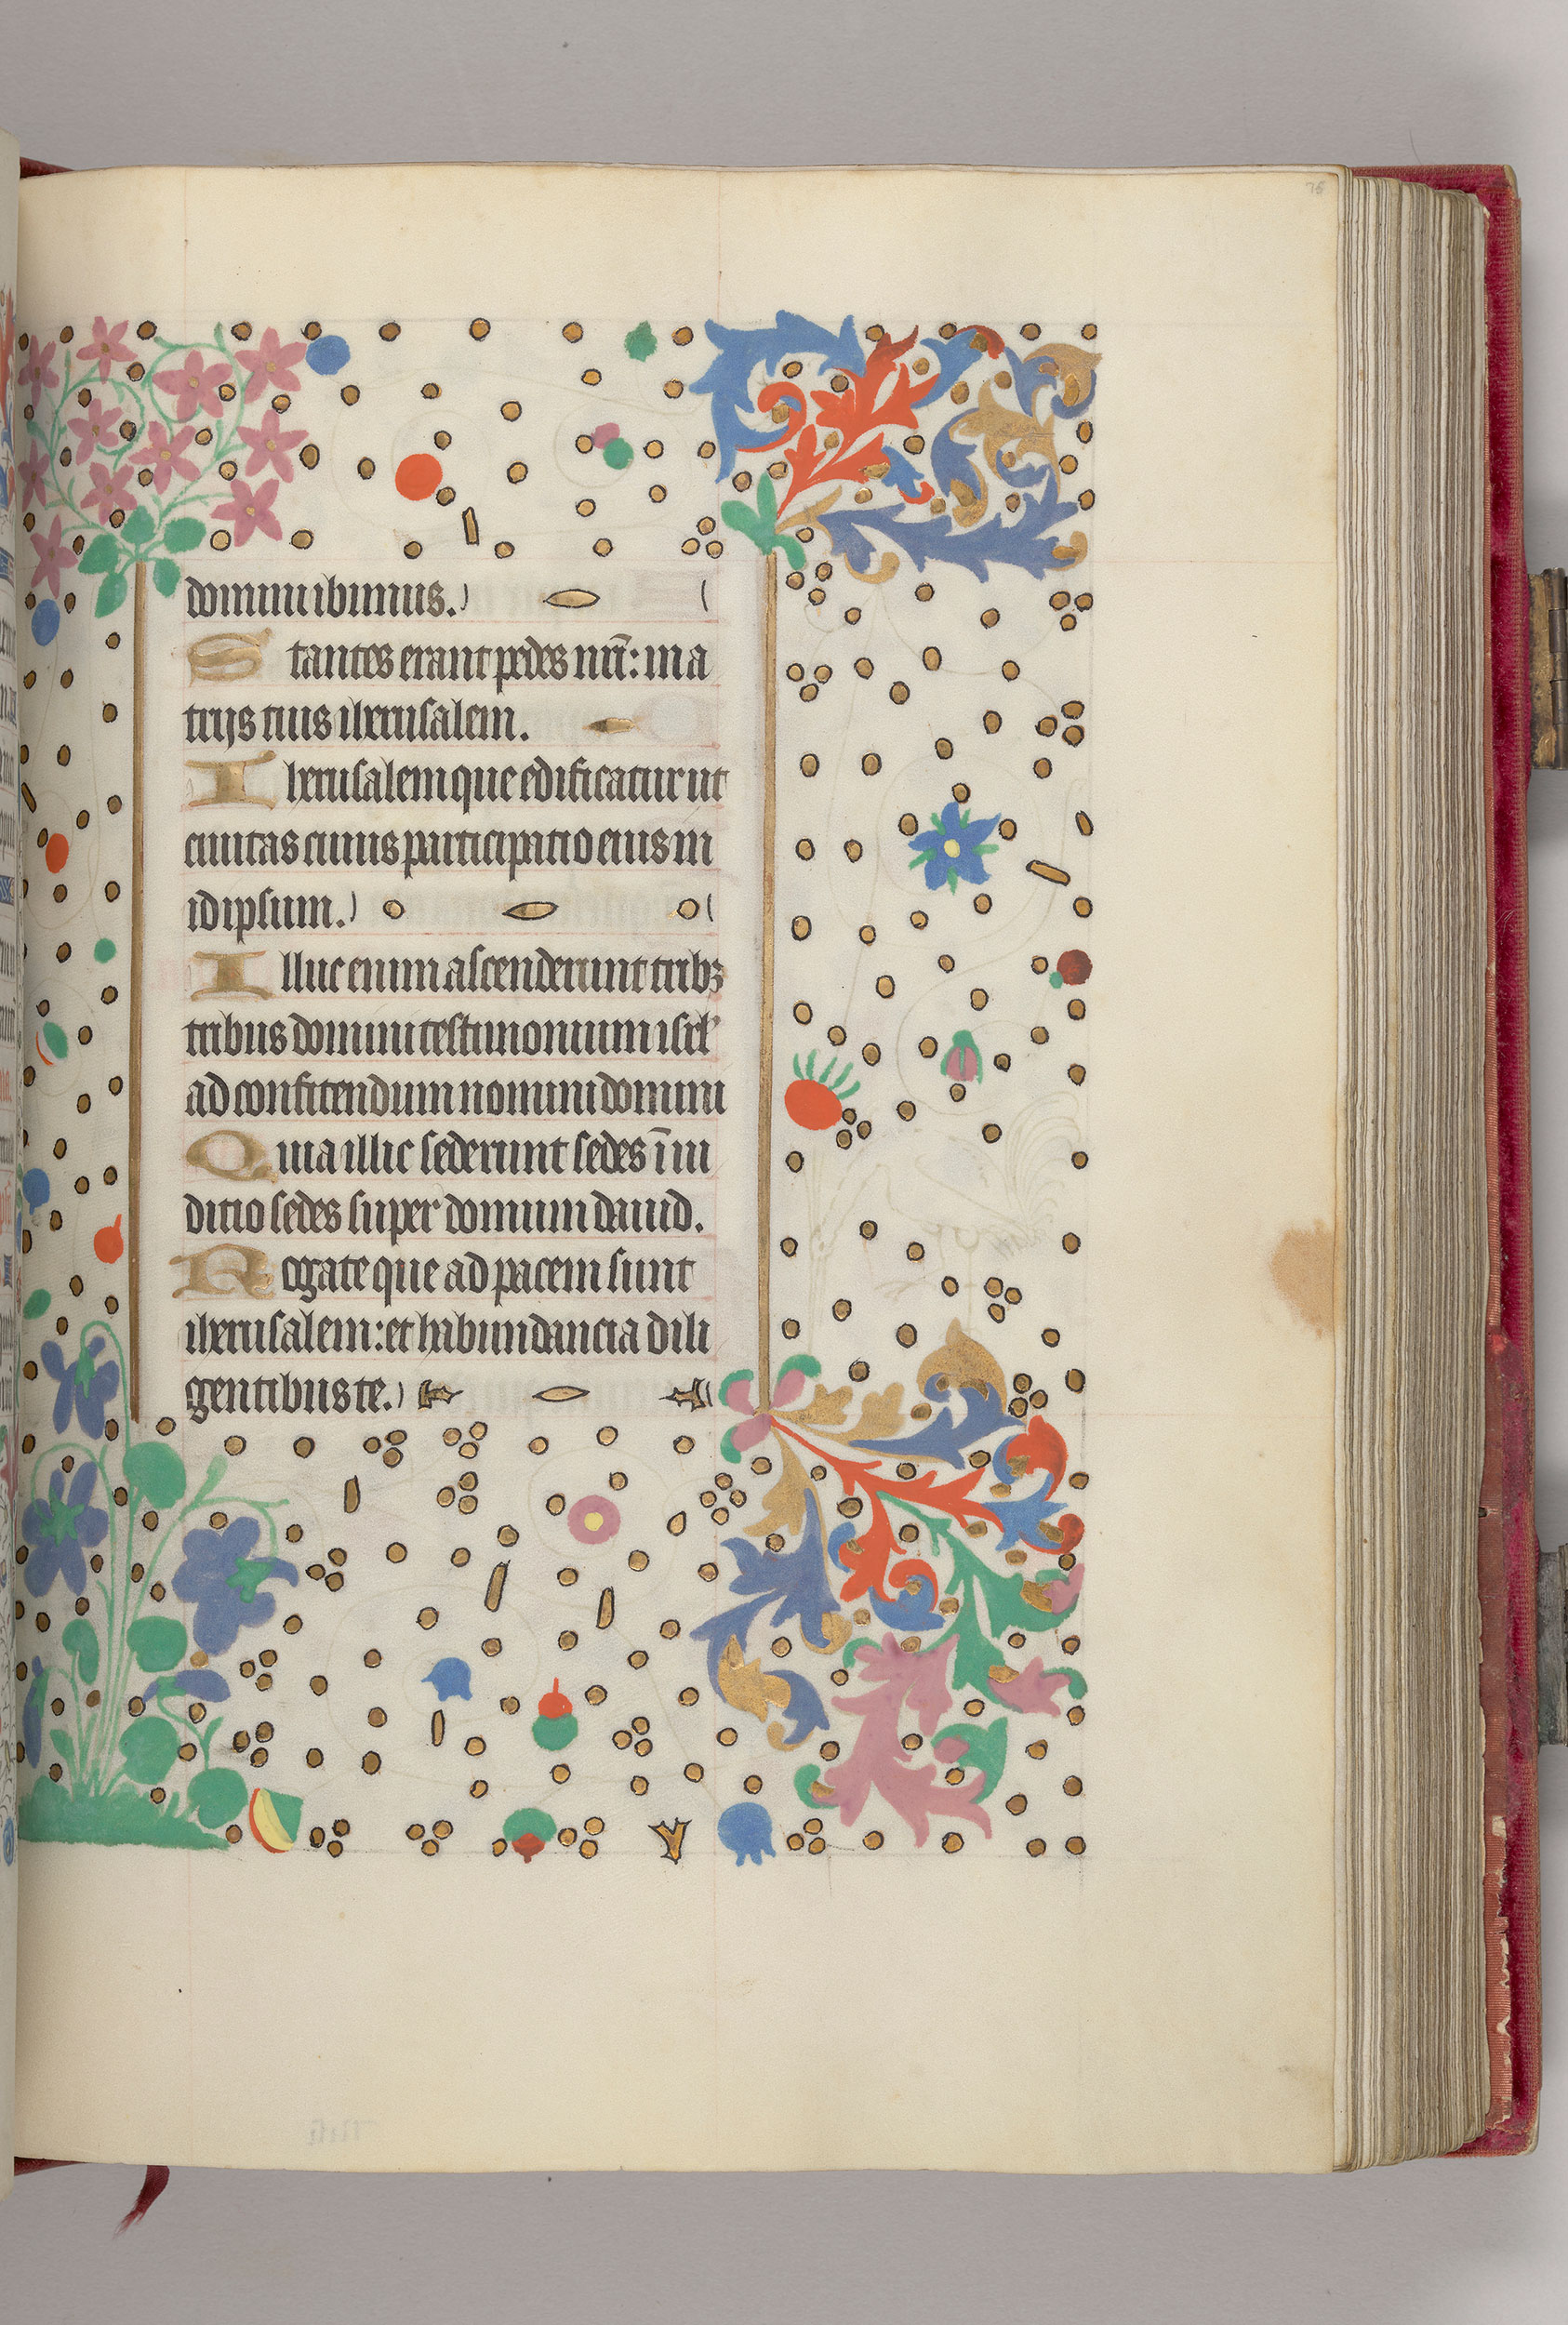 76
domini ibimus.
Stantes erant pedes nr̄i: in a
trijs tuis iherusalem.
Iherusalem que edificatur ut
ciuitas cuius participatio eius in
idipsum.
Illuc enim ascenderunt tribꝫ
tribus domini testimonium isrl'
ad confitendum nomini domini
Quia illic sederunt sedes ī iu
ditio sedes super domum dauid.
Rogate que ad pacem sunt
iherusalem: et habundancia dili
gentibus te.